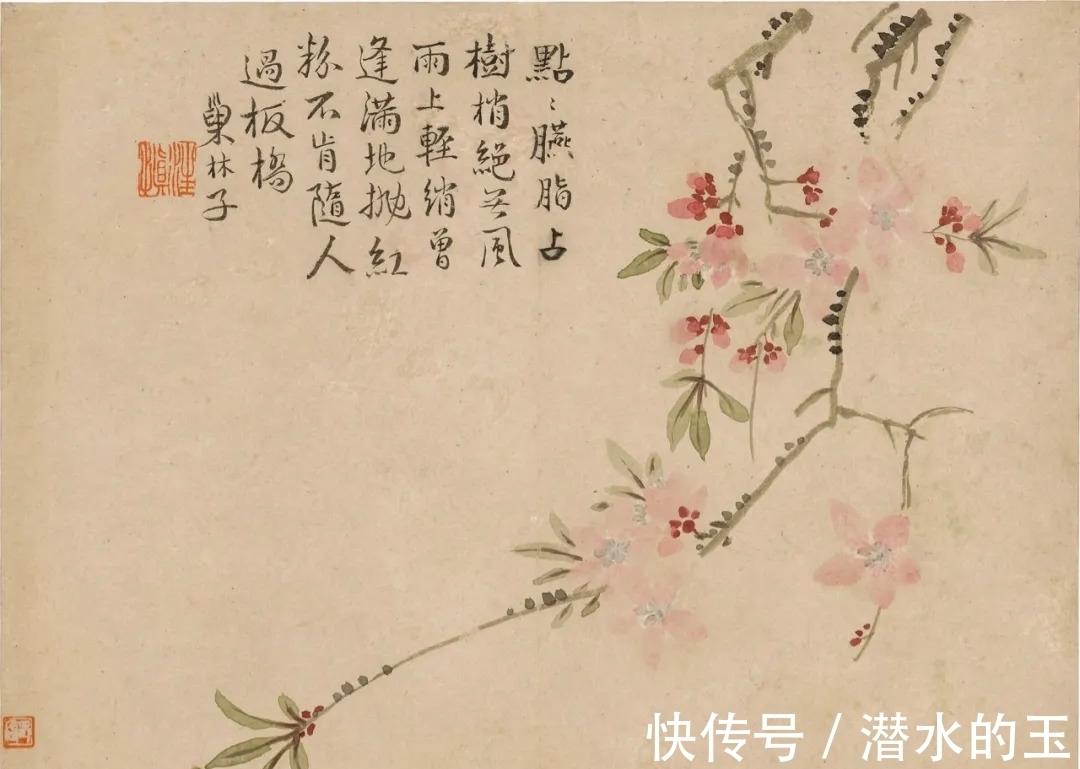 點〻臙脂占
樹梢絕無風
雨上輕綃曾
逢滿地拋紅
粉不肯隨人
過板橋
巢林子
汪慎
快传号 / 潜水的玉